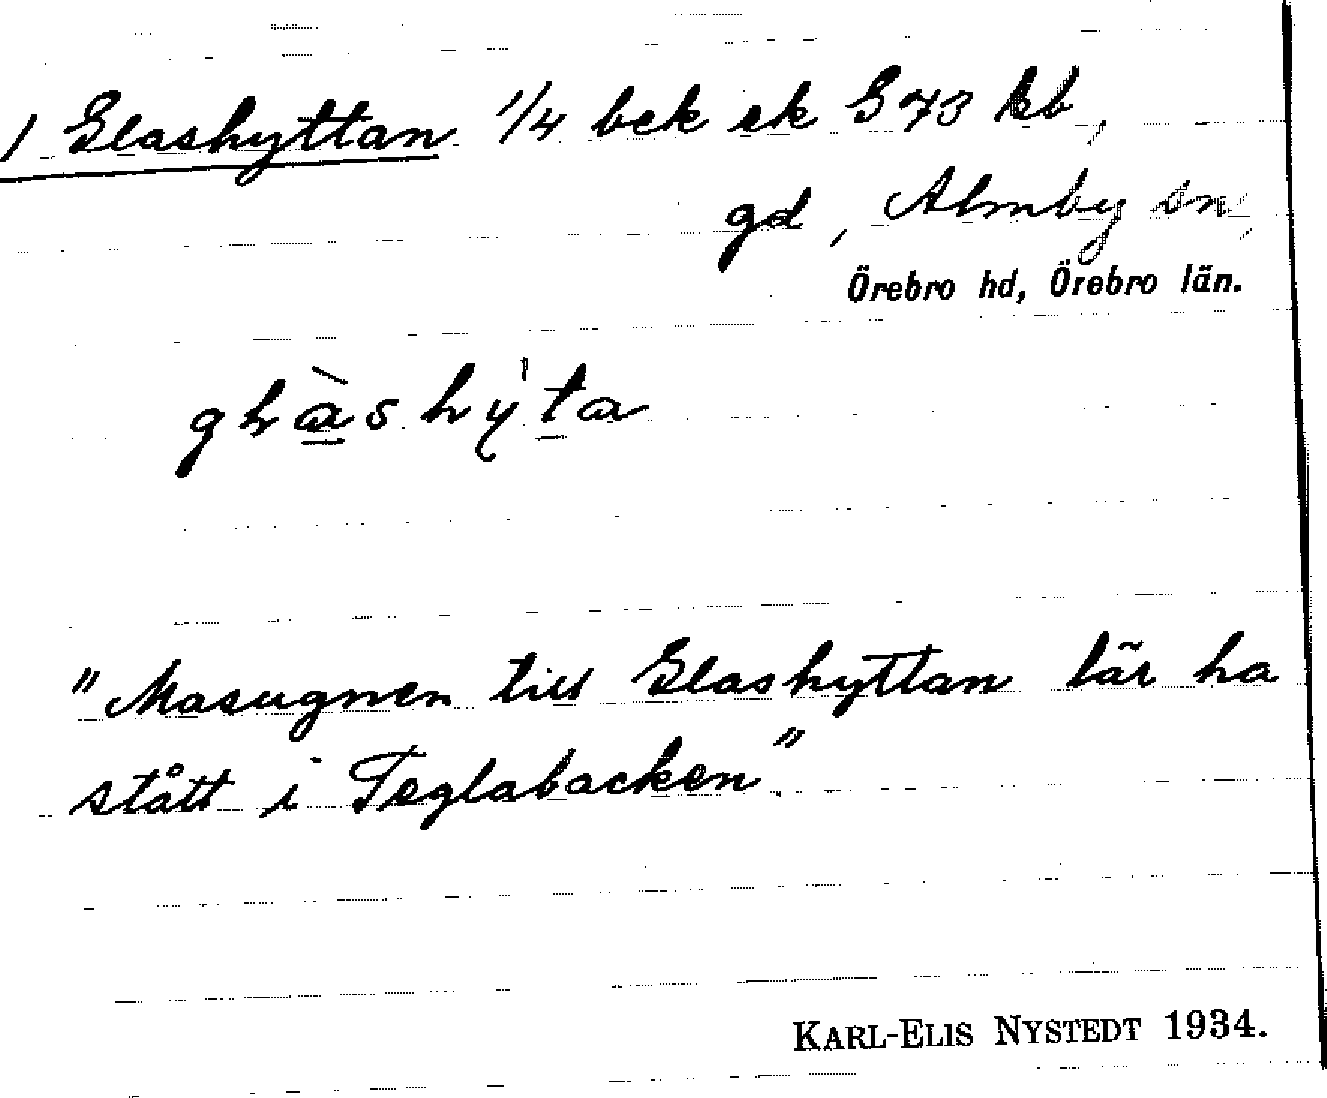 1 Glashyttan 1/4 bck ek G 73 kb,
gd, Almby sn,
Örebro hd, Örebro län.
"Masugnen till Glashyttan lär ha
stått i Teglabacken".
KARL-ELIS NYSTEDT 1934.